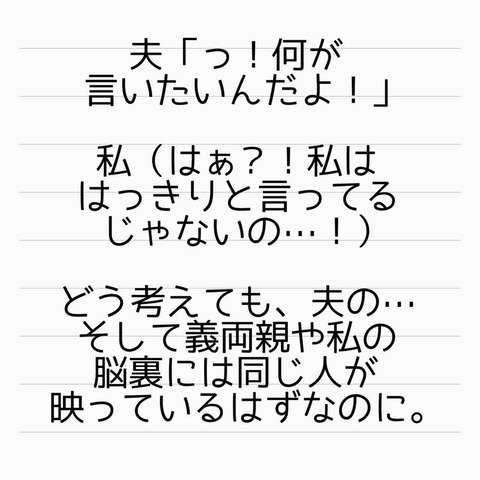 夫「っ！何が
言いたいんだよ！」
私（はぁ？！私は
はっきりと言ってる
じゃないの…！）
どう考えても、夫の…
そして義両親や私の
脳裏には同じ人が
映っているはずなのに。